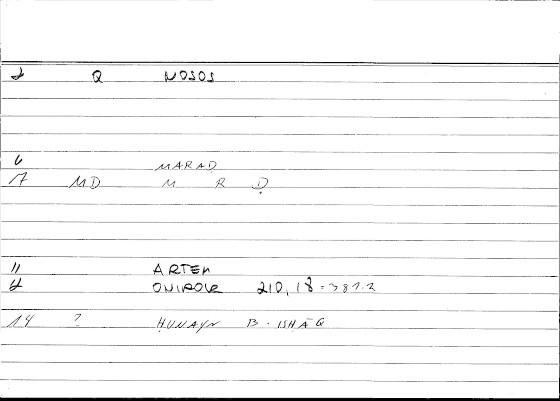 2 Q NOSOS
6 MARAḌ
7 MD M R Ḍ
11 ARTEM
12 ONIROCR 210,18=381.2
14 ? ḤUNAYN B. ISḤĀQ